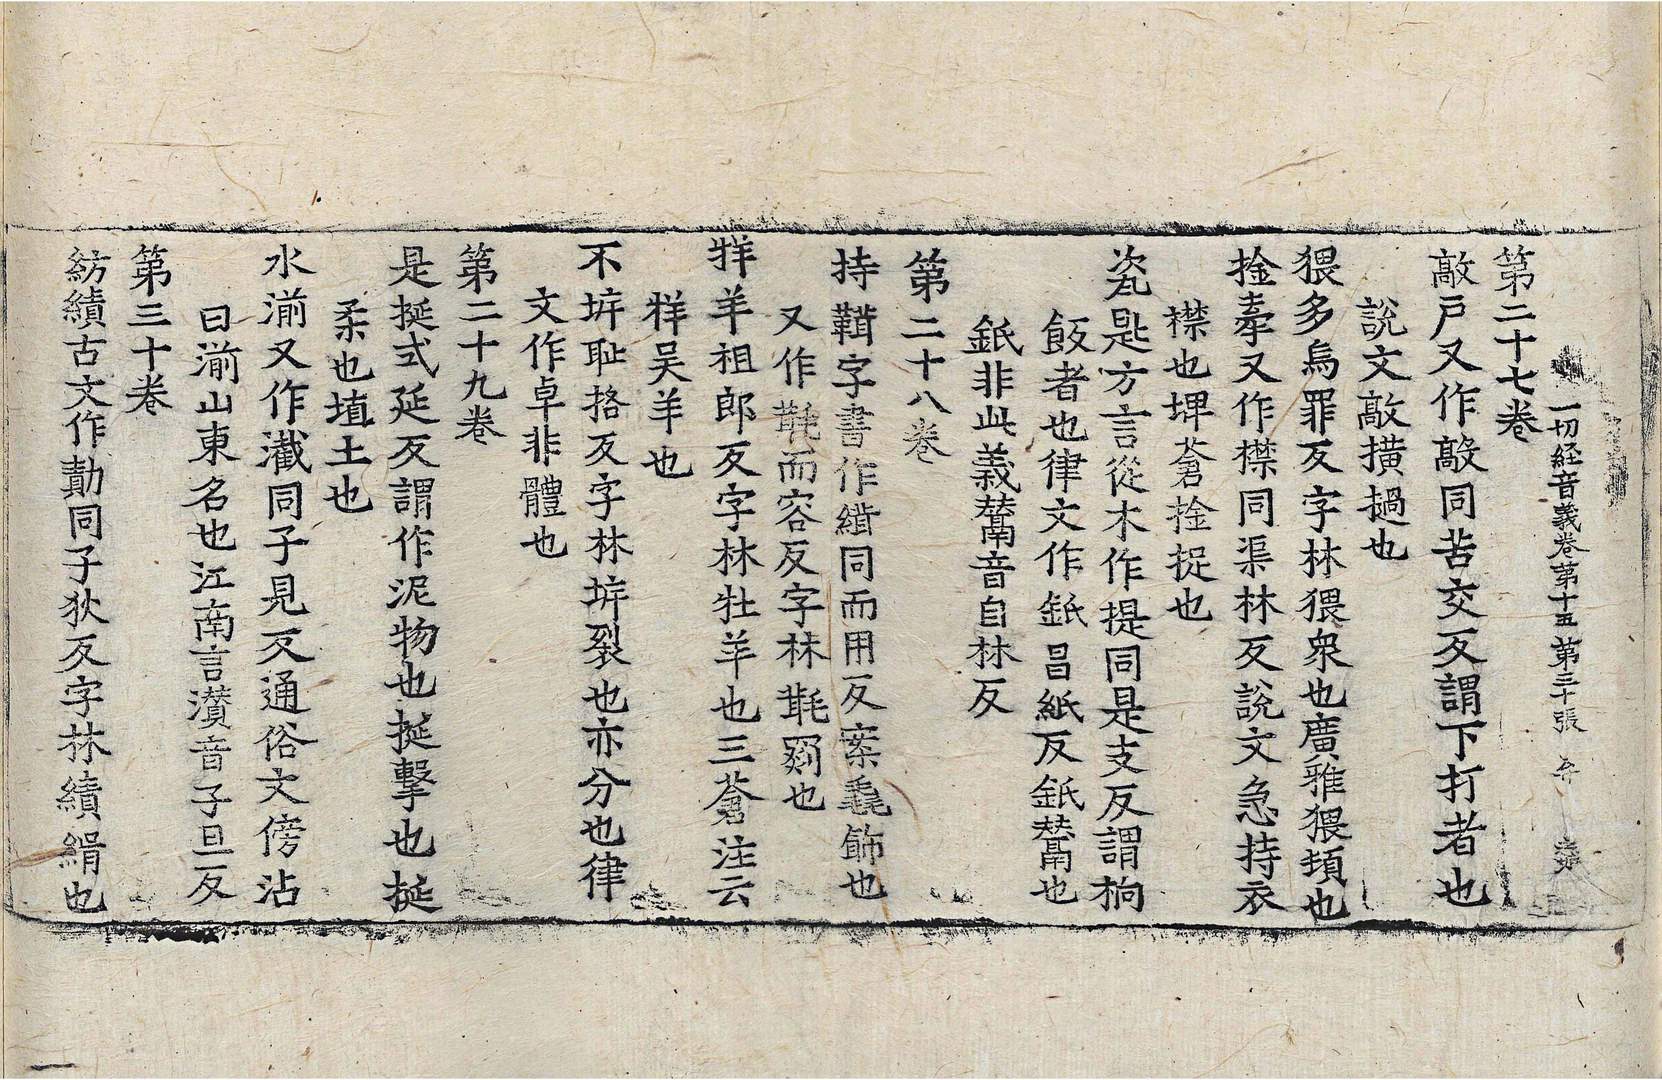 一切経音義卷第十五 第三十張
第二十七卷
敲戸又作毃同苦交反謂下打者也
說文敲橫撾也
猥多烏罪反字林猥衆也廣雅猥頓也
捦牽又作㩒同渠林反說文急持衣
襟也埤蒼捦捉也
瓷匙方言從木作提同是支反謂枸
飯者也律文作䤥昌紙反䤥鬵也
䤥非此義鬵音自林反
第二十八卷
持鞙字書作緝同而用反案毳飾也
又作氀而容反字林氀罽也
牂羊祖郎反字林牡羊也三蒼注云
牂吴羊也
不㡿耻格反字林㡿裂也亦分也律
文作卓非體也
第二十九卷
是挻式延反謂作泥物也挻擊也挻
柔也埴土也
水湔又作濺同子見反通俗文傍沾
曰湔山東名也江南言灒音子旦反
第三十卷
紡績古文作勣同子狄反字林績緝也